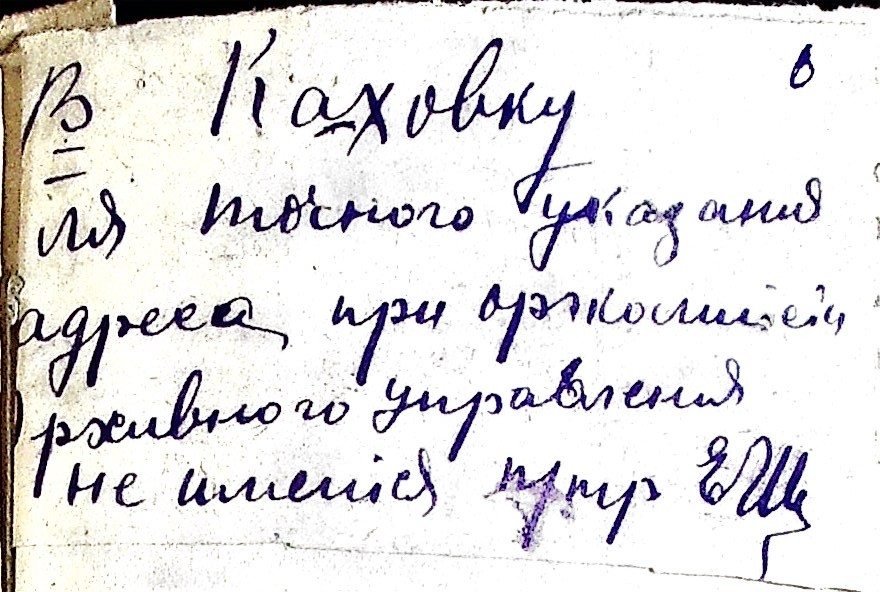 В Каховку
ля точного указания
адреса при оргкомитете
рхивного управления
не имется